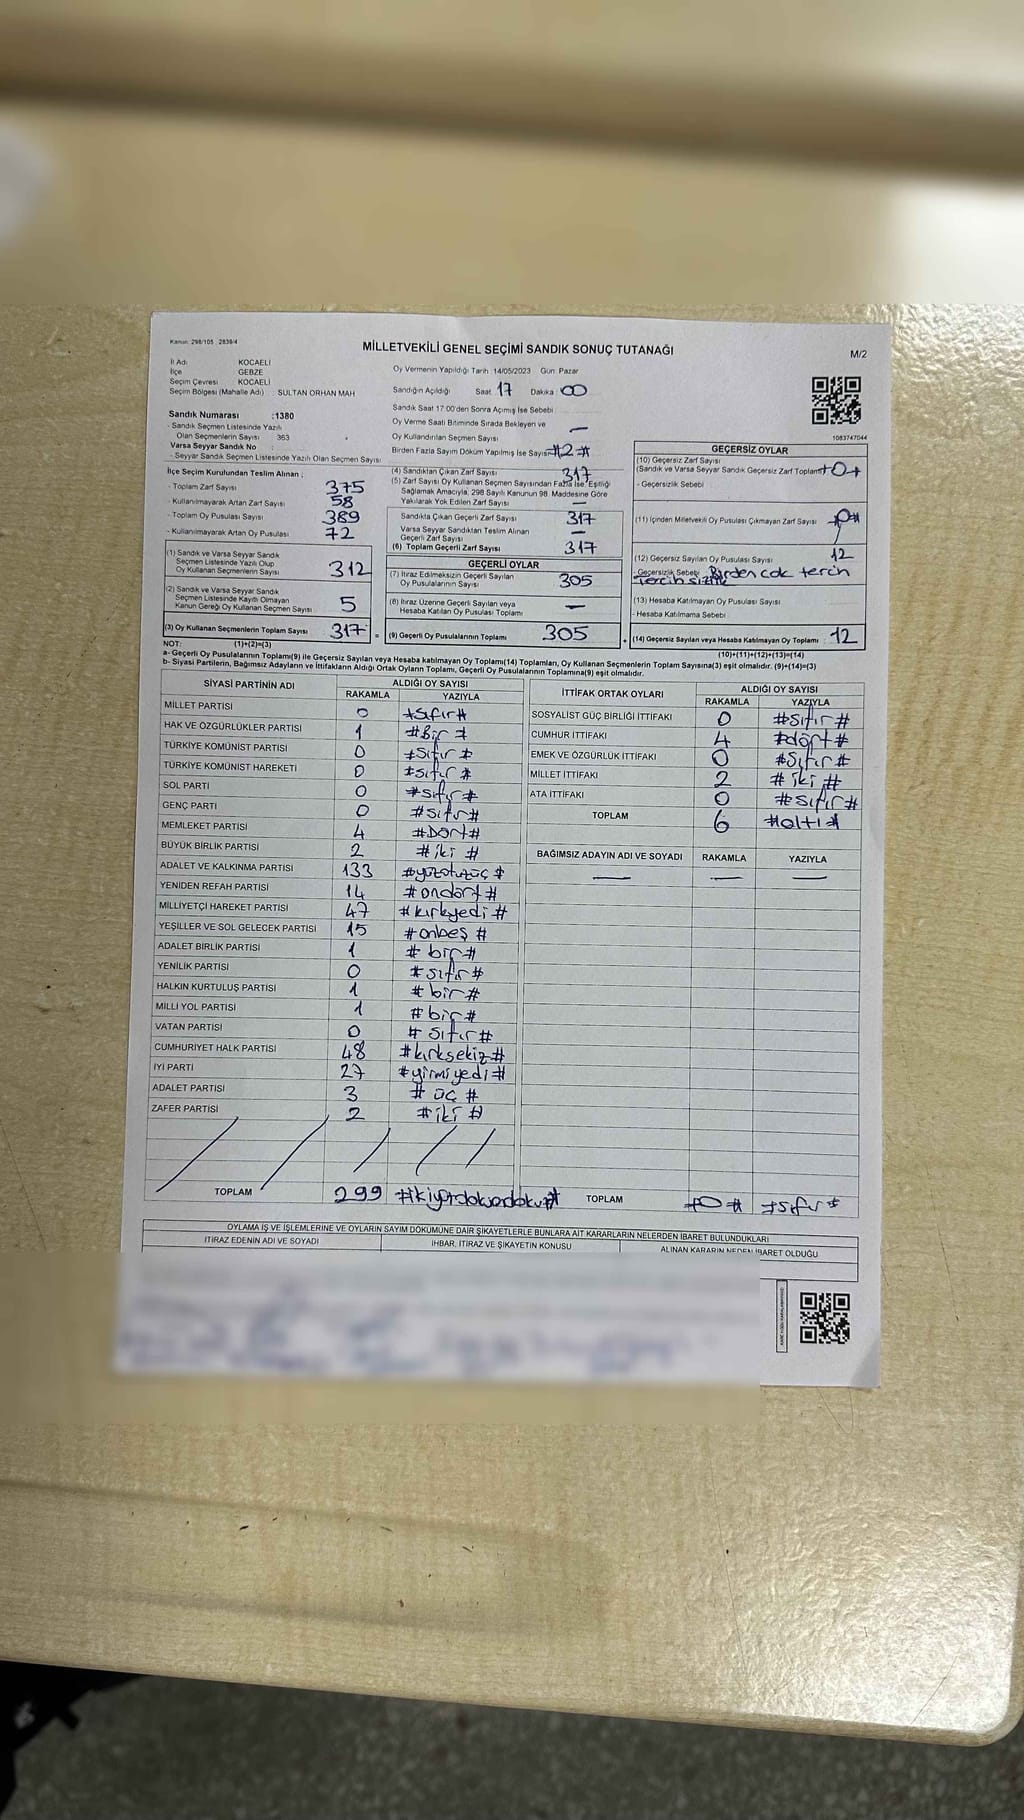 Kanun: 298/105 , 2839/4
MİLLETVEKİLİ GENEL SEÇİMİ SANDIK SONUÇ TUTANAĞI
M/2
İl Adı KOCAELİ
İlçe GEBZE
Seçim Çevresi KOCAELİ
Seçim Bölgesi (Mahalle Adı) : SULTAN ORHAN MAH
Sandık Numarası :1380
- Sandık Seçmen Listesinde Yazılı
Olan Seçmenlerin Sayısı 363
Varsa Seyyar Sandık No
- Seyyar Sandık Seçmen Listesinde Yazılı Olan Seçmen Sayısı
İlçe Seçim Kurulundan Teslim Alınan ;
- Toplam Zarf Sayısı 375
- Kullanılmayarak Artan Zarf Sayısı 58
- Toplam Oy Pusulası Sayısı 389
- Kullanılmayarak Artan Oy Pusulası 72
(1) Sandık ve Varsa Seyyar Sandık
Seçmen Listesinde Yazılı Olup
Oy Kullanan Seçmenlerin Sayısı 312
(2) Sandık ve Varsa Seyyar Sandık
Seçmen Listesinde Kayıtlı Olmayan
Kanun Gereği Oy Kullanan Seçmen Sayısı 5
(3) Oy Kullanan Seçmenlerin Toplam Sayısı 317
(1)+(2)=(3)
Oy Vermenin Yapıldığı Tarih 14/05/2023 Gün: Pazar
Sandığın Açıldığı Saat 17 Dakika : 00
Sandık Saat 17:00'den Sonra Açımış İse Sebebi
Oy Verme Saati Bitiminde Sırada Bekleyen ve
Oy Kullandırılan Seçmen Sayısı —
Birden Fazla Sayım Döküm Yapılmış İse Sayısı #2#
(4) Sandıktan Çıkan Zarf Sayısı 317
(5) Zarf Sayısı Oy Kullanan Seçmen Sayısından Fazla İse, Eşitliği
Sağlamak Amacıyla, 298 Sayılı Kanunun 98. Maddesine Göre
Yakılarak Yok Edilen Zarf Sayısı —
Sandıkta Çıkan Geçerli Zarf Sayısı 317
Varsa Seyyar Sandıktan Teslim Alınan
Geçerli Zarf Sayısı —
(6) Toplam Geçerli Zarf Sayısı 317
GEÇERLİ OYLAR
(7) İtiraz Edilmeksizin Geçerli Sayılan
Oy Pusulalarının Sayısı 305
(8) İtiraz Üzerine Geçerli Sayılan veya
Hesaba Katılan Oy Pusulası Toplamı —
(9) Geçerli Oy Pusulalarının Toplamı 305
1083747044
GEÇERSİZ OYLAR
(10) Geçersiz Zarf Sayısı
(Sandık ve Varsa Seyyar Sandık Geçersiz Zarf Toplamı) #0#
- Geçersizlik Sebebi
(11) İçinden Milletvekili Oy Pusulası Çıkmayan Zarf Sayısı
(12) Geçersiz Sayılan Oy Pusulası Sayısı 12
- Geçersizlik Sebebi Birden cok tercih
Tercihsizlik
(13) Hesaba Katılmayan Oy Pusulası Sayısı
- Hesaba Katılmama Sebebi
(14) Geçersiz Sayılan veya Hesaba Katılmayan Oy Toplamı 12
(10)+(11)+(12)+(13)=(14)
NOT:
a- Geçerli Oy Pusulalarının Toplamı(9) ile Geçersiz Sayılan veya Hesaba katılmayan Oy Toplamı(14) Toplamları, Oy Kullanan Seçmenlerin Toplam Sayısına(3) eşit olmalıdır. (9)+(14)=(3)
b- Siyasi Partilerin, Bağımsız Adayların ve İttifakların Aldığı Ortak Oyların Toplamı, Geçerli Oy Pusulalarının Toplamına(9) eşit olmalıdır.
SİYASİ PARTİNİN ADI ALDIĞI OY SAYISI
RAKAMLA YAZIYLA
MİLLET PARTİSİ 0 #Sıfır#
HAK VE ÖZGÜRLÜKLER PARTİSİ 1 #Bir#
TÜRKİYE KOMÜNİST PARTİSİ 0 #Sıfır#
TÜRKİYE KOMÜNİST HAREKETİ 0 #sıfır#
SOL PARTİ 0 #sıfır#
GENÇ PARTİ 0 #sıfır#
MEMLEKET PARTİSİ 4 #Dört#
BÜYÜK BİRLİK PARTİSİ 2 #iki #
ADALET VE KALKINMA PARTİSİ 133 #yüzotuzüç#
YENİDEN REFAH PARTİSİ 14 #ondört#
MİLLİYETÇİ HAREKET PARTİSİ 47 #kırkyedi#
YEŞİLLER VE SOL GELECEK PARTİSİ 15 #onbeş #
ADALET BİRLİK PARTİSİ 1 # bir#
YENİLİK PARTİSİ 0 #sıfır#
HALKIN KURTULUŞ PARTİSİ 1 # bir#
MİLLİ YOL PARTİSİ 1 #bir#
VATAN PARTİSİ 0 # sıfır#
CUMHURİYET HALK PARTİSİ 48 #kırksekiz#
İYİ PARTİ 27 #yirmiyedi#
ADALET PARTİSİ 3 # üç #
ZAFER PARTİSİ 2 #iki #
TOPLAM 299 #ikiyüzdoksandokuz#
İTTİFAK ORTAK OYLARI ALDIĞI OY SAYISI
RAKAMLA YAZIYLA
SOSYALİST GÜÇ BİRLİĞİ İTTİFAKI 0 #sıfır#
CUMHUR İTTİFAKI 4 #dört#
EMEK VE ÖZGÜRLÜK İTTİFAKI 0 #Sıfır#
MİLLET İTTİFAKI 2 # iki #
ATA İTTİFAKI 0 #sıfır#
TOPLAM 6 #altı#
BAĞIMSIZ ADAYIN ADI VE SOYADI RAKAMLA YAZIYLA
— — —
TOPLAM #0# #sıfır#
OYLAMA İŞ VE İŞLEMLERİNE VE OYLARIN SAYIM DÖKÜMÜNE DAİR ŞİKAYETLERLE BUNLARA AİT KARARLARIN NELERDEN İBARET BULUNDUKLARI
İTİRAZ EDENİN ADI VE SOYADI İHBAR, İTİRAZ VE ŞİKAYETİN KONUSU ALINAN KARARIN NEDEN İBARET OLDUĞU